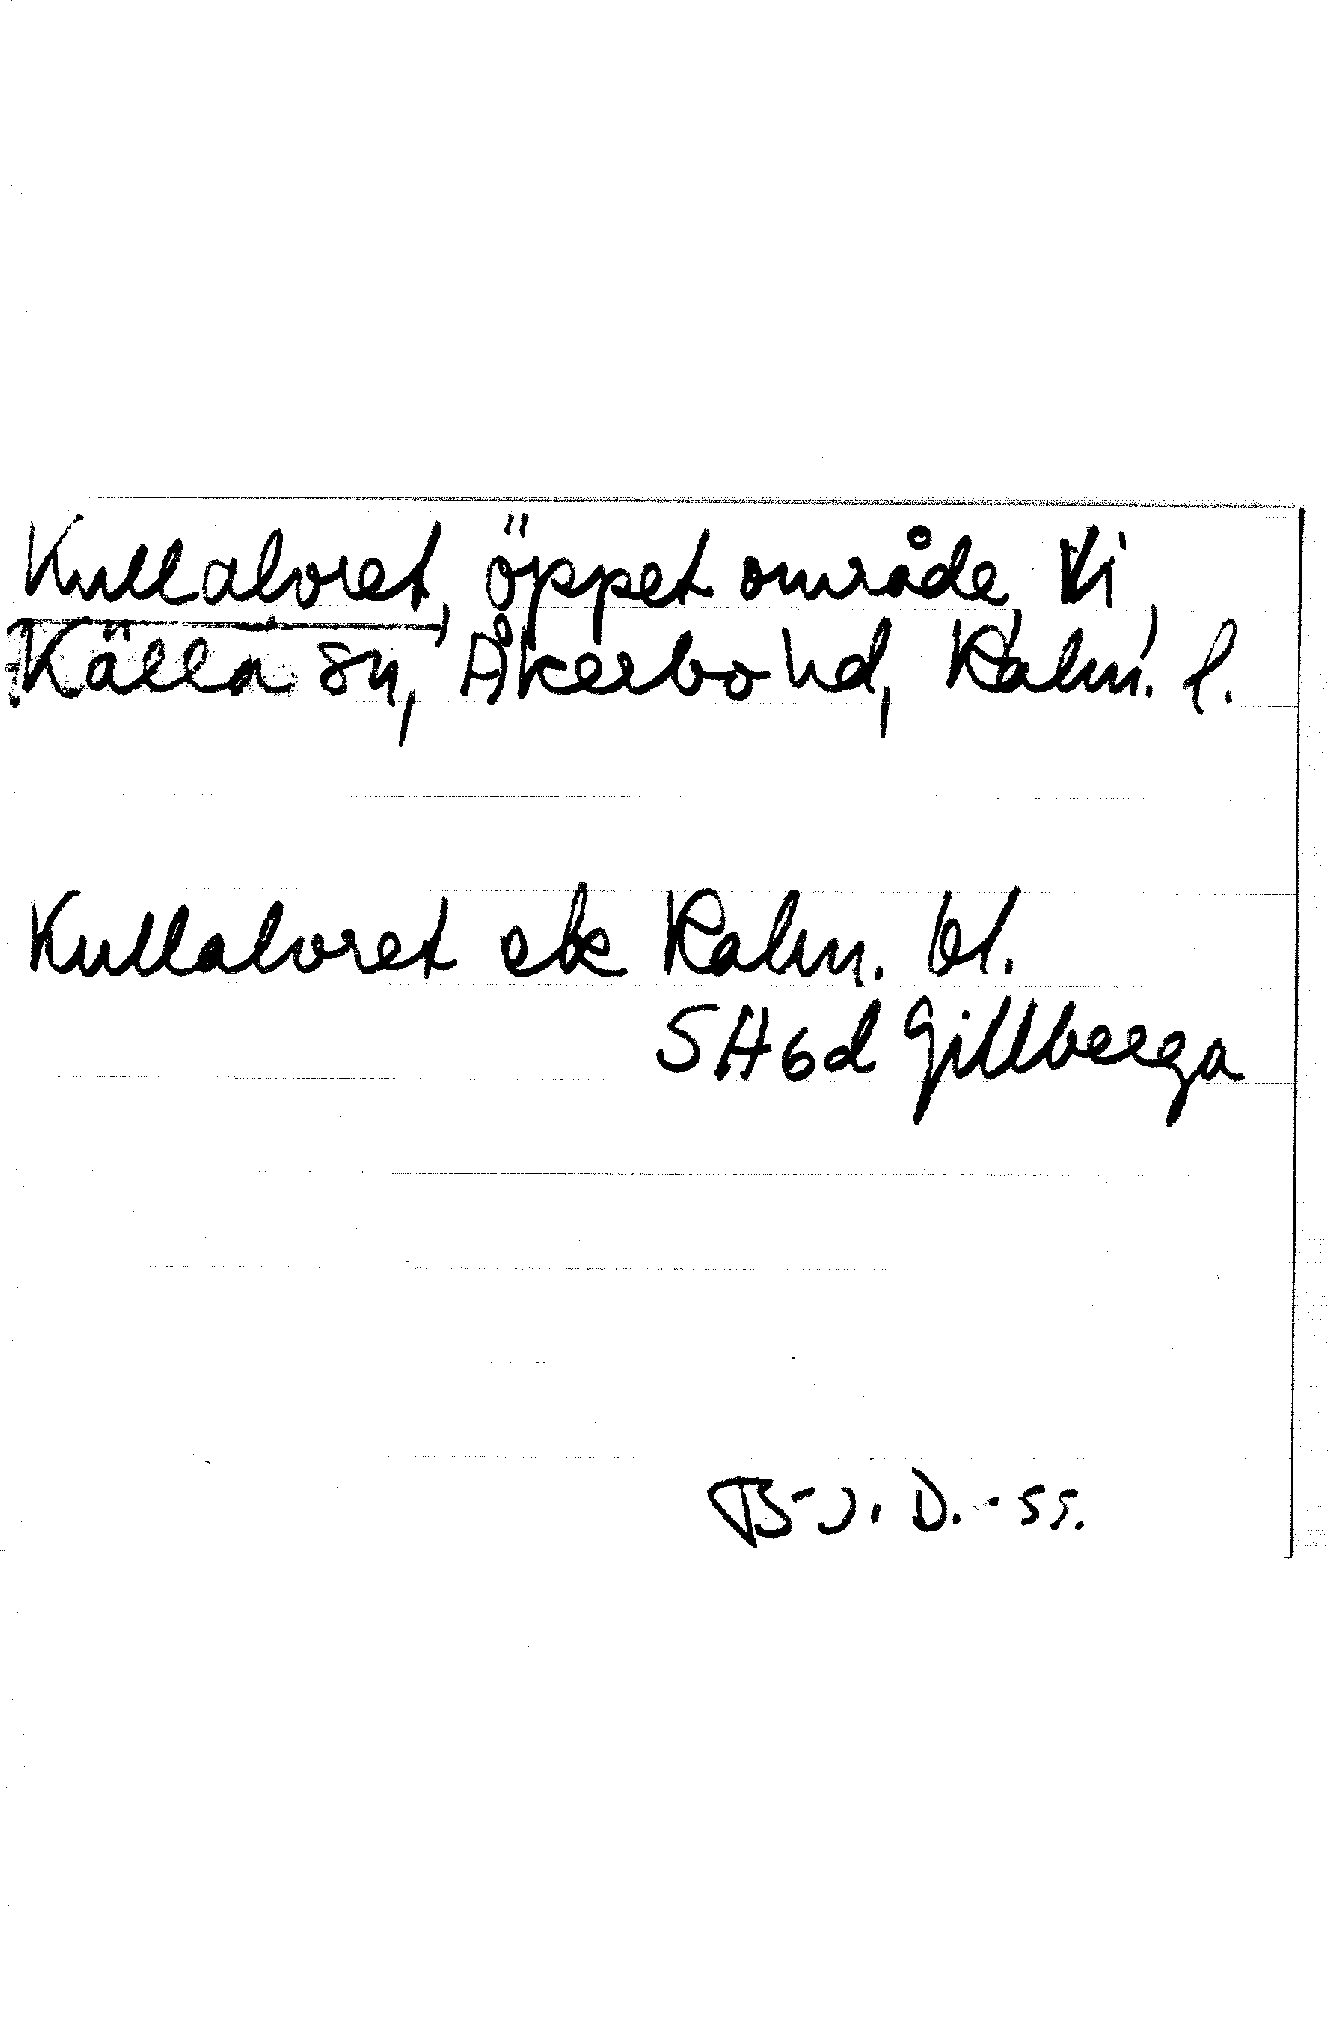 Kullalvret, öppet område, Vi,
Källa sn, Åkerbo hd, Kalm. l.
Kullalvret ek Kalm. bl.
5H6d Gillberga
B-J. D. -55.